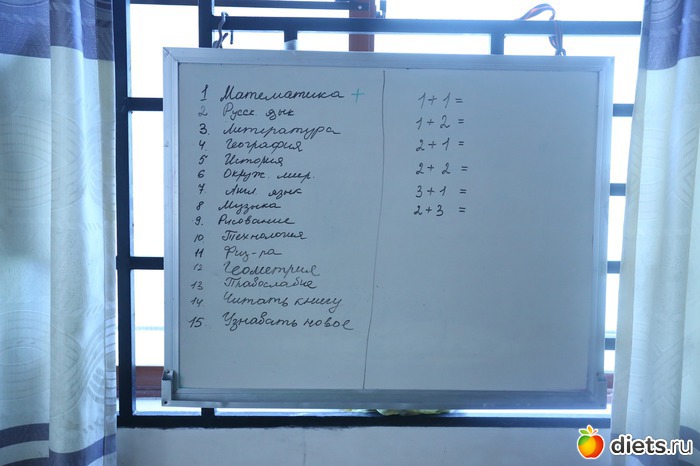 1 Математика +
2 Русс. язык
3. Литература
4. География
5 История
6 Окруж. мир.
7 Анл. язык
8 Музыка
9. Рисование
10. Технология
11 Физ-ра
12 Геометрия
13 Православие
14 Читать книгу
15. Узнавать новое
1 + 1 =
1 + 2 =
2 + 1 =
2 + 2 =
3 + 1 =
2 + 3 =
diets.ru